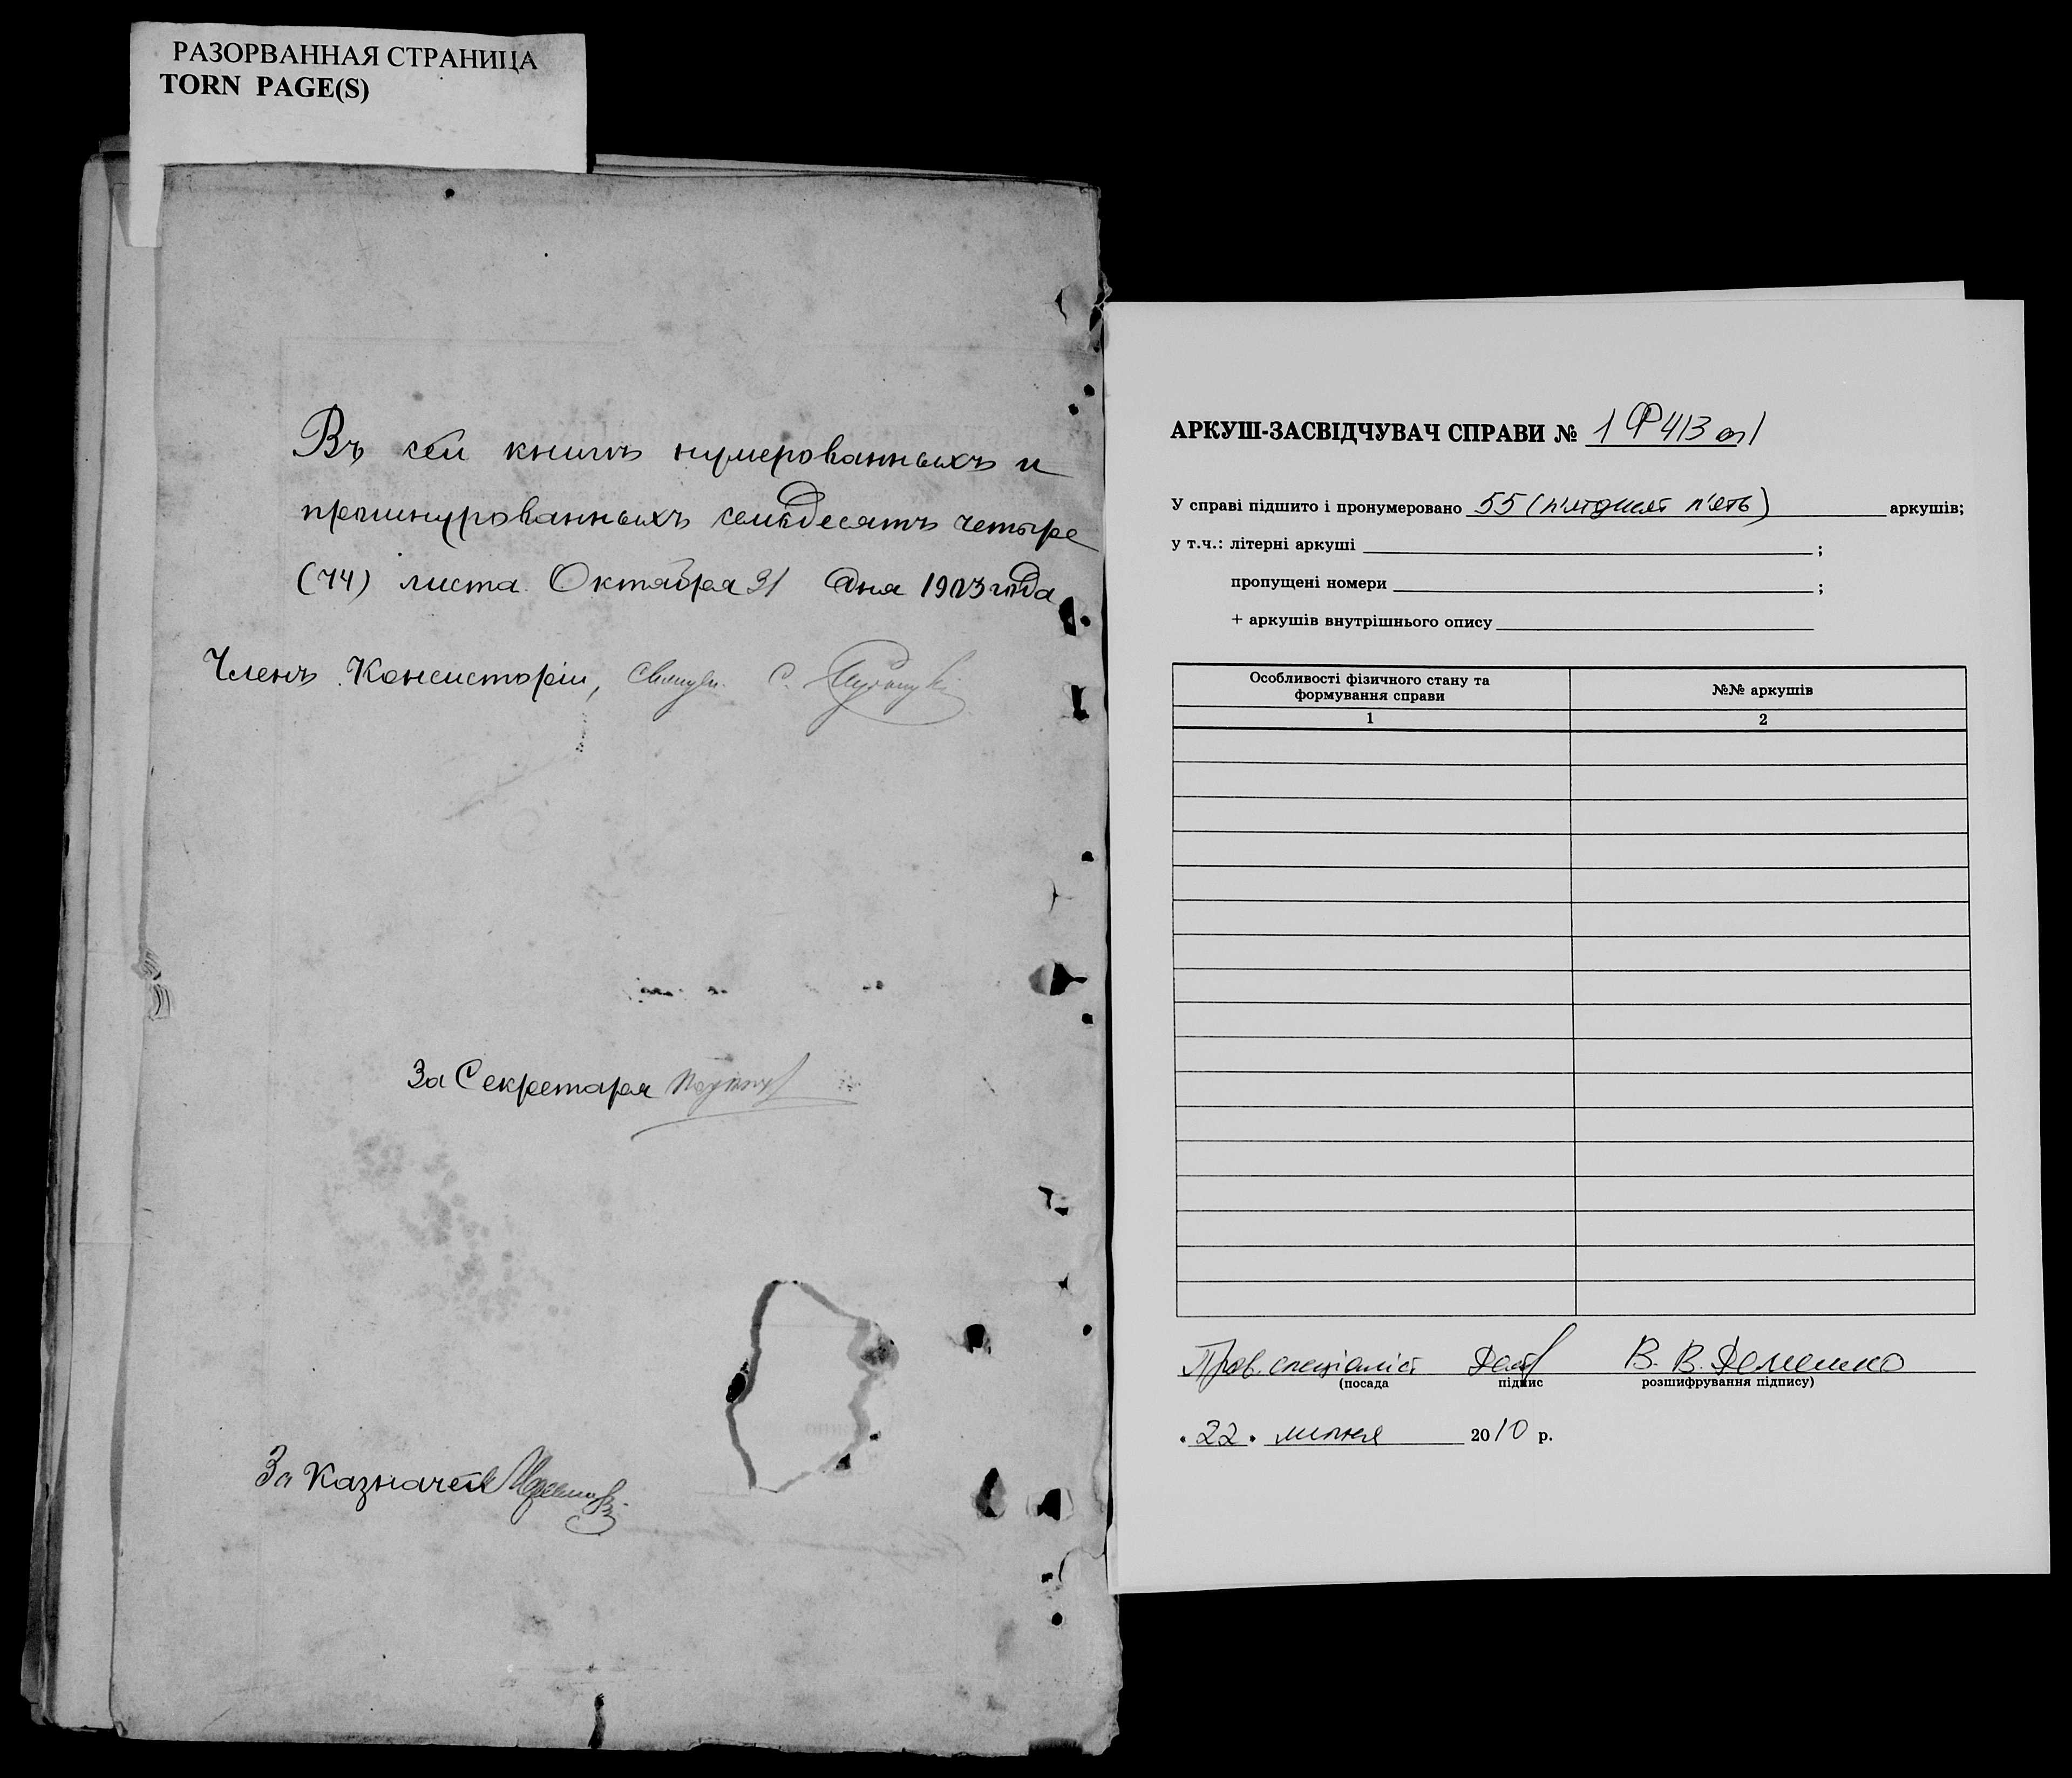 РАЗОРВАННАЯ СТРАНИЦА
TORN PAGE(S)
Въ сей книгѣ нумерованныхъ и
прошнурованныхъ семьдесятъ четыре
(74) листа Октября 31 дня 1903 года
Членъ Консисторіи, Священ. С.
За Секретаря
За Казначея
АРКУШ-ЗАСВІДЧУВАЧ СПРАВИ № 1 Ф 413 оп 1
У справі підшито і пронумеровано 55 (п'ятдесят п'ять) аркушів;
у т.ч.: літерні аркуші ;
пропущені номери ;
+ аркушів внутрішнього опису
Особливості фізичного стану та формування справи
№№ аркушів
1 2
Пров. спеціаліст В. В.
(посада підпис розшифрування підпису)
"22" липня 2010 р.